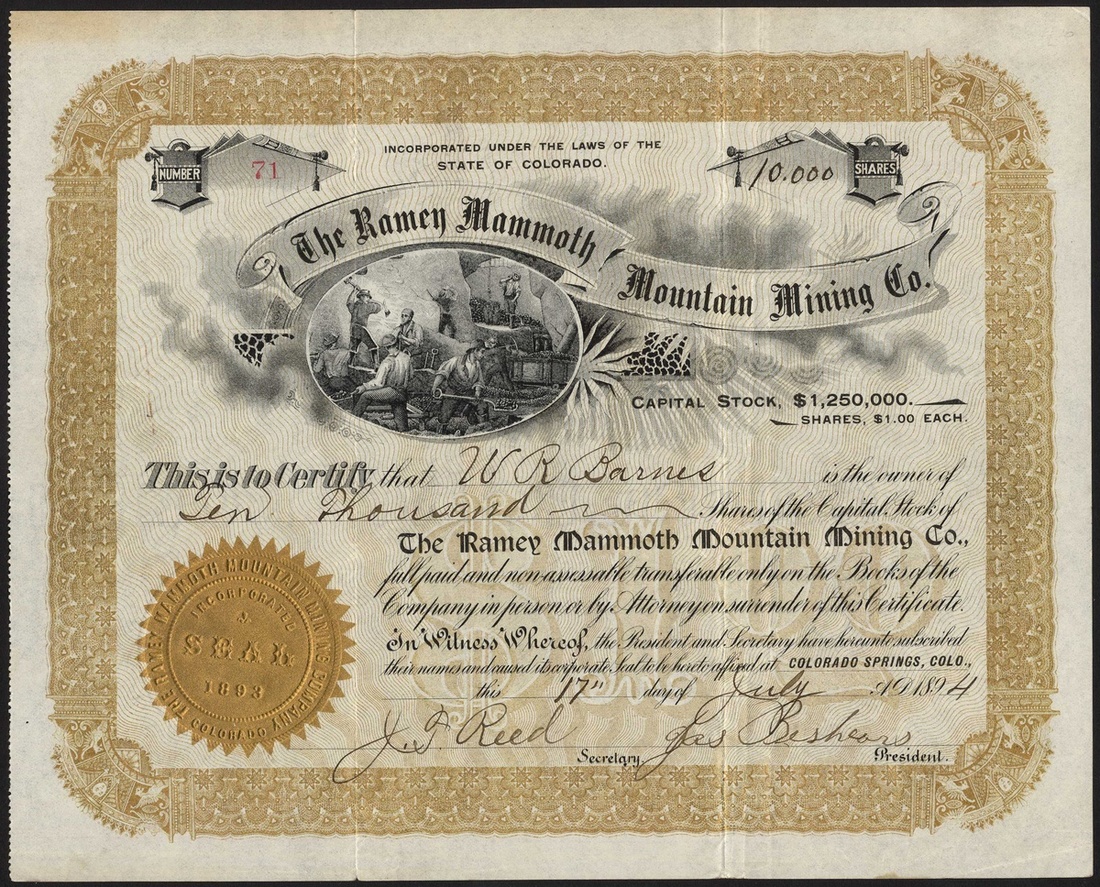 INCORPORATED UNDER THE LAWS OF THE
STATE OF COLORADO.
NUMBER 71
10.000 SHARES
The Ramey Mammoth Mountain Mining Co.
CAPITAL STOCK, $1,250,000.
SHARES, $1.00 EACH.
This is to Certify that W R Barnes is the owner of
Ten Thousand Shares of the Capital Stock of
The Ramey Mammoth Mountain Mining Co.,
full paid and non-assessable transferable only on the Books of the
Company in person or by Attorney on surrender of this Certificate.
In Witness Whereof, the President and Secretary have hereunto subscribed
their names and caused its corporate Seal to be hereto affixed at COLORADO SPRINGS, COLO.,
this 17th day of July AD 1894
J. F. Reed Secretary Jas Beshears President.
THE RAMEY MAMMOTH MOUNTAIN MINING COMPANY
INCORPORATED
SEAL
1893
COLORADO